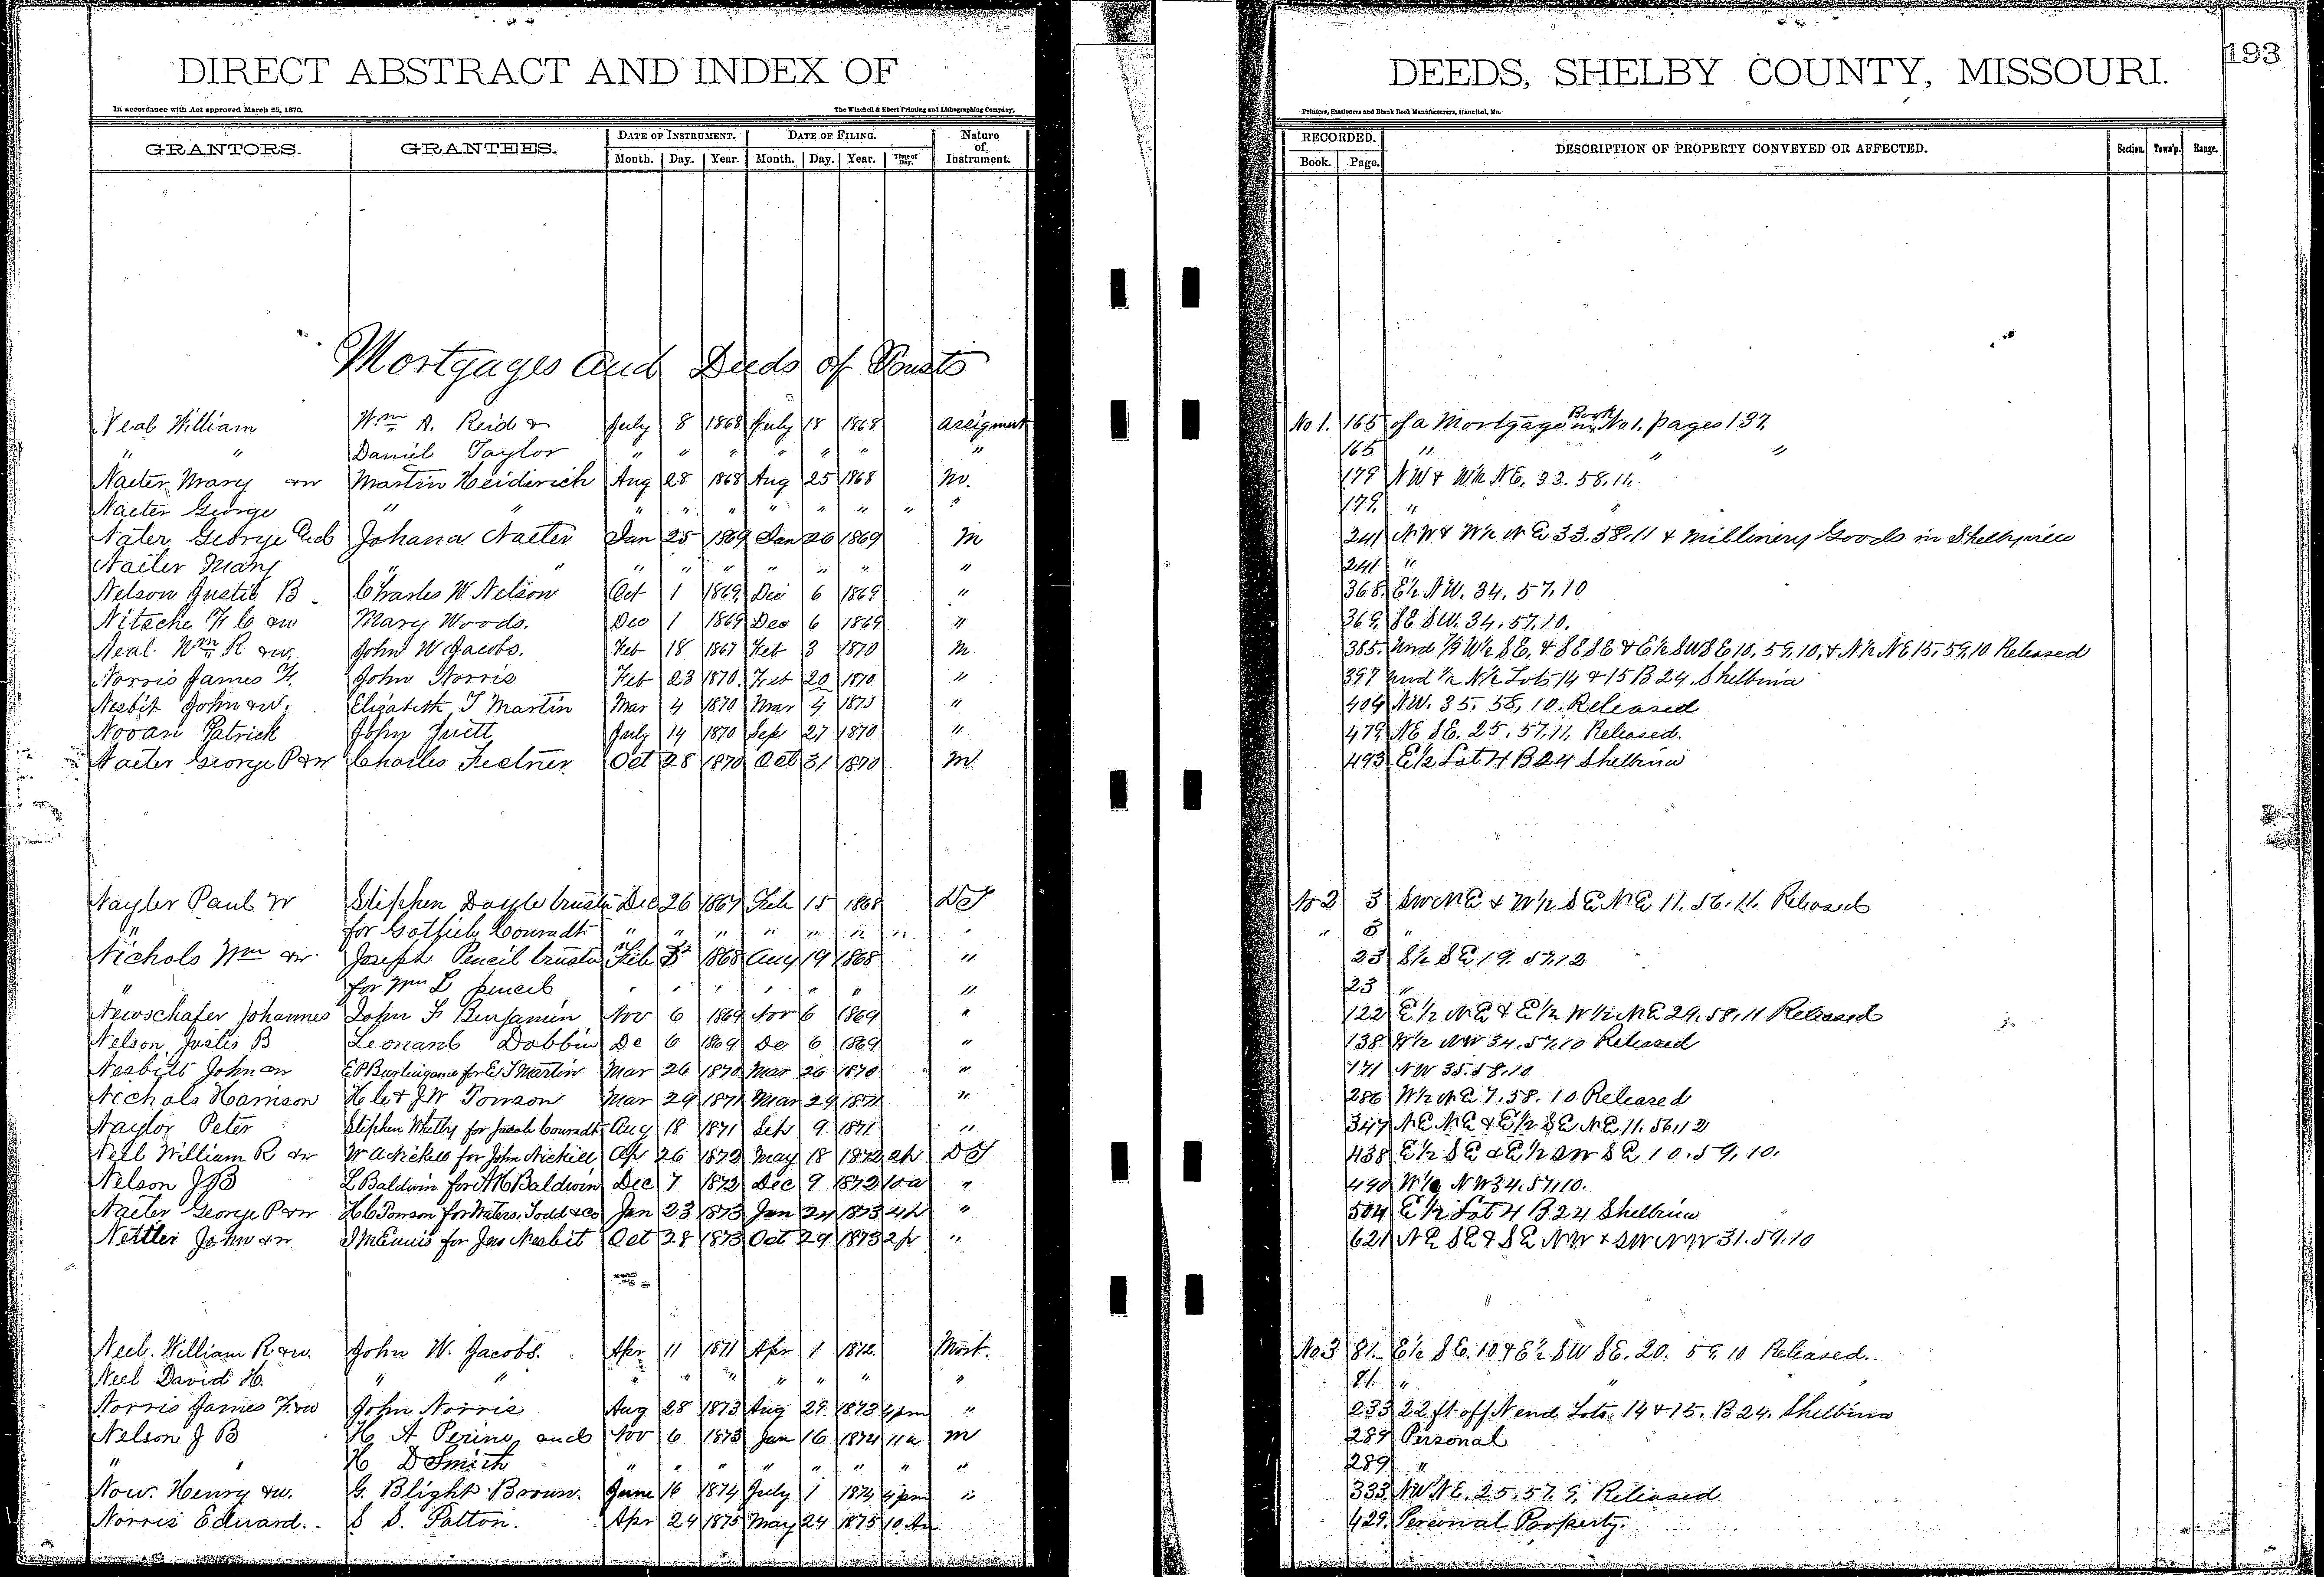 193
DIRECT ABSTRACT AND INDEX OF DEEDS, SHELBY COUNTY, MISSOURI.
In accordance with Act approved March 25, 1870. The Winchell & Ebert Printing and Lithographing Company, Printers, Stationers and Blank Book Manufacturers, Hannibal, Mo.
GRANTORS. GRANTEES. DATE OF INSTRUMENT. DATE OF FILING. Nature of Instrument. RECORDED. DESCRIPTION OF PROPERTY CONVEYED OR AFFECTED. Section. Town'p. Range.
Month. Day. Year. Month. Day. Year. Time of Day. Book. Page.
Mortgages and Deeds of Trusts
Neal William Wm A. Reid & July 8 1868 July 18 1868 assigment No 1. 165 of a Mortgage in Book No 1, pages 137.
" " Daniel Taylor " " " " " " " 165 " " "
Naeter Mary &w Martin Heiderich Aug 28 1868 Aug 25 1868 M. 179 NW & W½ NE, 33. 58. 11.
Naeter George " " " " " " " " " " 179. " "
Näter George Johana Naeter Jan 25 1869 Jan 26 1869 M 241 NW & W½ NE 33. 58. 11 & millinery Goods in Shelbyville
Naeter Mary " " " " " " " " " 241 "
Nelson Justis B Charles W Nelson Oct 1 1869 Dec 6 1869 " 368. E½ NW. 34. 57. 10
Nitsche F C &w Mary Woods. Dec 1 1869 Dec 6 1869 " 369. SE SW. 34. 57. 10.
Neal. Wm R &w. John W Jacobs. Feb 18 1867 Feb 3 1870 M 385. Und 7/9 W½ SE, & SE SE & E½ SW SE 10, 59, 10, & N½ NE 15, 59, 10 Released
Norris James F. John Norris Feb 23 1870. Feb 20 1870 " 397 und ½ N½ Lots 14 & 15 B 24. Shelbina
Nesbit John &w. Elizabeth T Martin Mar 4 1870 Mar 4 1875 " 404 NW. 35. 58, 10. Released
Nooan Patrick John Juett July 14 1870 Sep 27 1870 " 479. NE SE. 25. 57. 11. Released.
Naeter George P &w Charles Fectner. Oct 28 1870 Oct 31 1870 M 493 E½ Lot 4 B 24 Shelbina
Nayler Paul W Stephen Doyle trustee Dec 26 1867 Feb 15 1868 DT No 2 3 SW NE & W½ SE NE 11. 56. 11. Released
" for Gotfieb Conradt " " " " " " " " " 3 "
Nichols Wm &w. Joseph Pencil trustee Feb 1868 Aug 19 1868 " 23 S½ SE 19. 57. 12
" for Wm L pencil " " " " " " " 23 "
Newschafer Johannes John F Benjamin Nov 6 1869 Nov 6 1869 " 122 E½ NE & E½ W½ NE 29. 58. 11 Released
Nelson Justis B Leonard Dobbin De 6 1869 De 6 1869 " 138 W½ NW 34. 57. 10 Released
Nesbitt John &w E P Burlingame for E T Martin Mar 26 1870 Mar 26 1870 " 171 NW 35. 58. 10
Nichols Harrison H C & J W Towson Mar 29 1871 Mar 29 1871 " 286 W½ NE 7. 58. 10 Released
Naylor Peter Stephen Whitby for Jacob Conradt Aug 18 1871 Seh 9 1871 " 347 NE NE & E½ SE NE 11. 56. 12
Neel William R &w W A Nickell for John Nickell Ap 26 1872 May 18 1872 2p DT 438 E½ SE & E½ SW SE 10. 59. 10.
Nelson J B L Baldwin for A H Baldwin Dec 7 1872 Dec 9 1872 10a " 490 W½ NW 34. 57. 10.
Naeter George P &w H C Towson for Waters, Todd & Co Jan 23 1873 Jan 24 1873 4p " 504 E½ Lot 4 B 24 Shelbina
Nettler John &w J M Ennis for Jas Nesbit Oct 28 1873 Oct 29 1873 2p " 621 NE SE & SE NW & SW NW 31. 59. 10
Neel. William R &w. John W. Jacobs. Apr 11 1871 Apr 1 1872. Mort. No 3 81. E½ SE. 10 & E½ SW SE. 20. 59. 10 Released.
Neel David H. " " " " " " " " " 81. " "
Norris James F. &w John Norris Aug 28 1873 Aug 29 1873 4pm " 233 22 ft off N end Lots 14 & 15. B 24. Shelbina
Nelson J B H A Perine and Nov 6 1873 Jan 16 1874 11a M 289 Personal
" " H D Smith " " " " " " " " 289 "
Now. Henry &w. G. Blight Brown. June 16 1874 July 1 1874 4pm " 333. NW NE. 25. 57. 9. Released
Norris Edward. S S. Patton. Apr 24 1875 May 24 1875 10 Am 429. Personal Property.